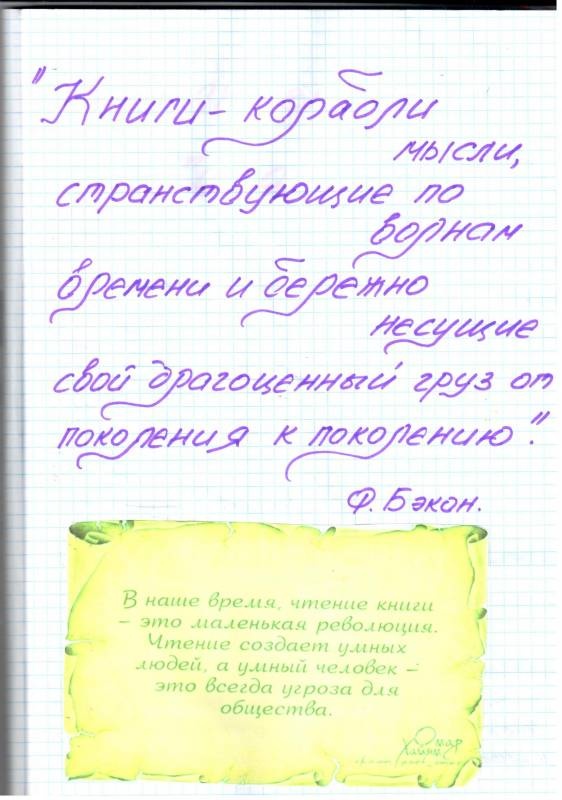 "Книги - корабли
мысли,
странствующие по
волнам
времени и бережно
несущие
свой драгоценный груз от
поколения к поколению".
Ф. Бэкон.
В наше время, чтение книги
– это маленькая революция.
Чтение создает умных
людей, а умный человек –
это всегда угроза для
общества.
Омар
Хайям